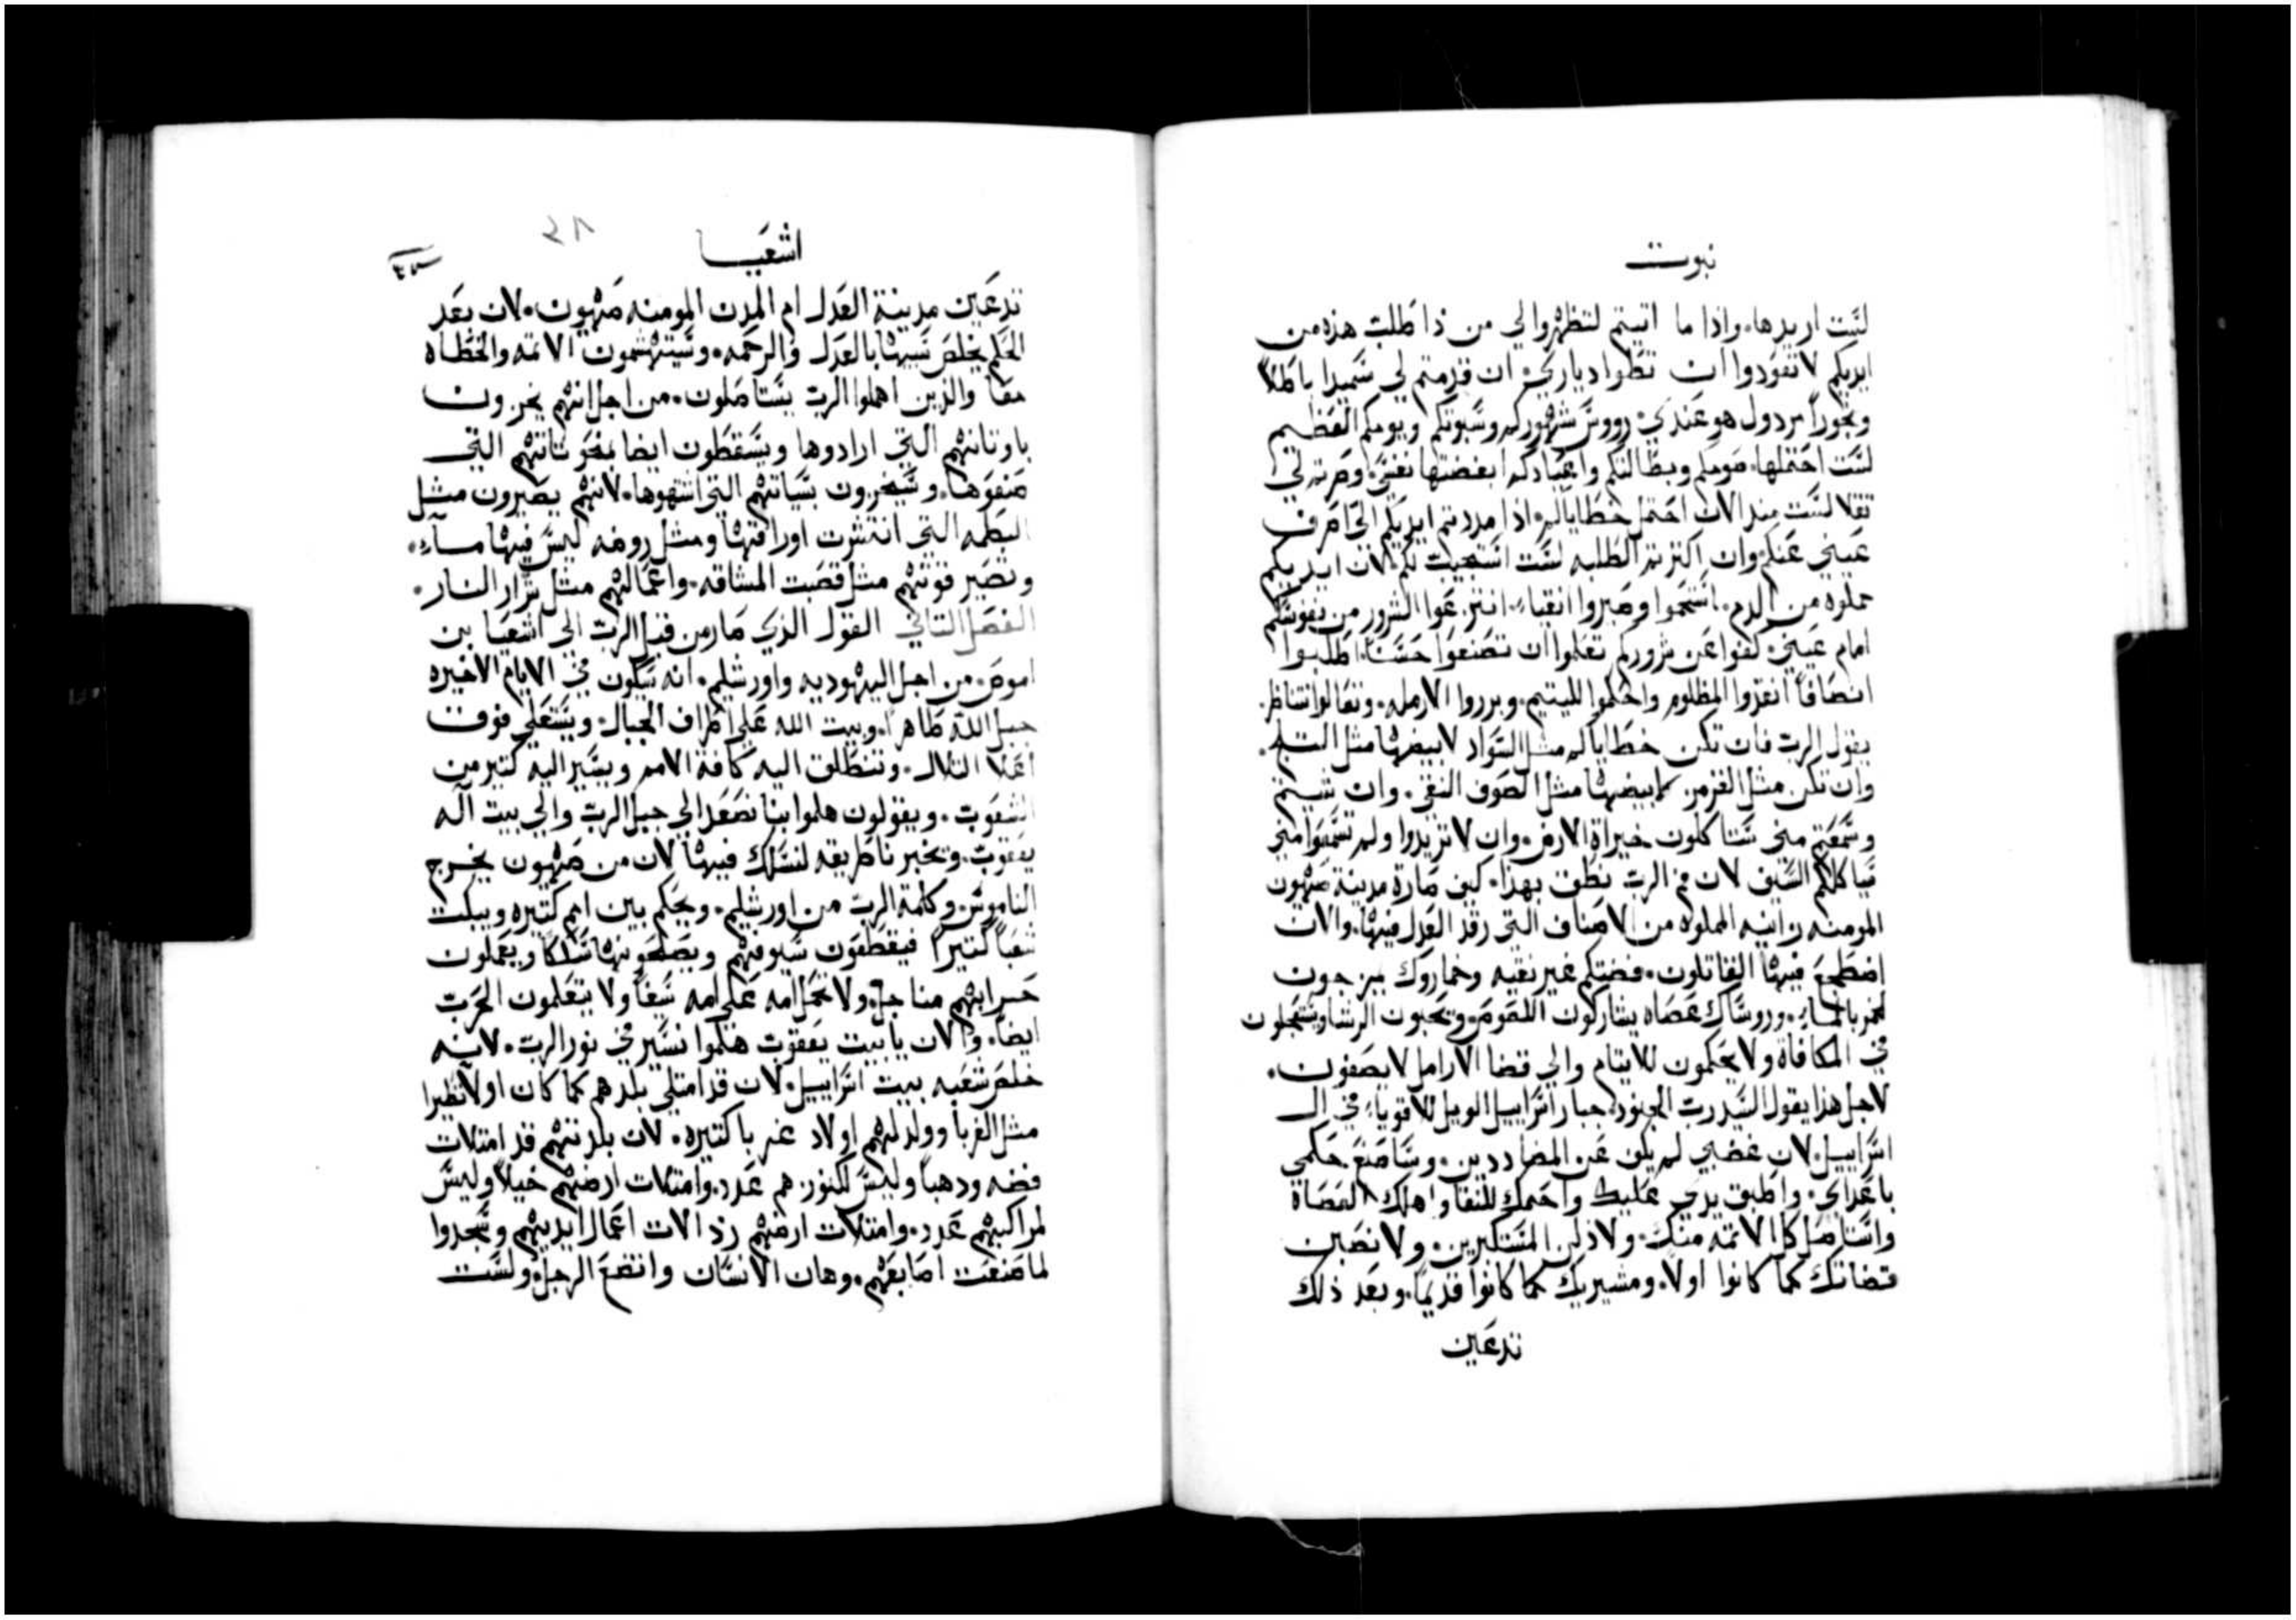 نبوت
لست اريدها. واذا ما اتيتم لتظهروا لي من ذا طلب هذه من
ايديكم لا تعودوا ان تطوا دياري. ان قدمتم لي سميدا باطلا
وبخورا مردول هو عندي. رووس شهوركم وسبوتكم ويومكم العظيم
لست احتملها. صومكم وبطالتكم واعيادكم ابغضتها نفسي. وصرتم لي
ثقلا لست منذ الان احتمل خطاياكم. اذا مددتم ايديكم الي اصرف
عيني عنكم وان اكثرتم الطلبه لست استجيب لكم لان ايديكم
مملوه من الدم. استحموا وصيروا انقياء. انتزعوا الشرور من نفوسكم
امام عيني. كفوا عن شروركم تعلموا ان تصنعوا حسنا. اطلبوا
انصافا انقذوا المظلوم واحكموا لليتيم. وبرروا الارمله. وتعالوا نتناظر.
يقول الرب فان تكن خطاياكم مثل السواد لابيضها مثل الثلج.
وان تكن مثل القرمز لابيضها مثل الصوف النقي. وان شيتم
وسمعتم مني ستاكلون خيراة الارض. وان لا تريدوا ولم تسمعوا مني
سياكلكم السيف لان فم الرب نطق بهذا. كيف صارة مدينة صهيون
المومنه زانيه المملوه من الاصناف التي رقد العدل فيها. والان
اضطجع فيها القاتلون. فضتكم غير نقيه وخماروك يمزجون
الخمر بالماء. وروساك عصاه يشاركون اللصوص ويحبون الرشا ويستعجلون
في المكافاه ولا يحكمون للايتام والي قضا الارامل لا يصغون.
لاجل هذا يقول السيد رب الجنود. جبار اسراييل الويل للاقوياء في ال
اسراييل. لان غضبي لم يكف عن المضاددين. وساصنع حكمي
باعداي. واطبق يدي عليك واحميك للنقا واهلك العصاة
واستاصل كل الاثمه منك. ولاذلن المستكبرين. ولانصبن
قضاتك كما كانوا اولا. ومشيريك كما كانوا قديما. وبعد ذلك
تدعين
اشعيا
٢٨
تدعين مدينة العدل ام المدن المومنه صهيون. لان بعد
الحكم يخلص سبيها بالعدل والرحمه. وسيتهشمون الاثمه والخطاه
معا والذين اهملوا الرب يستاصلون. من اجل انهم يخزون
باوثانهم التي ارادوها ويسقطون ايضا بمنحوتاتهم التي
صنعوها. وسيخزون بسياتهم التي اشتهوها. لانهم يصيرون مثل
البطمه التي انتثرت اوراقها ومثل روضه ليس فيها ماء.
وتصير قوتهم مثل قصبت المشاقه. واعمالهم مثل شرار النار.
الفصل الثاني القول الذي صار من قبل الرب الي اشعيا بن
اموص. من اجل اليهوديه واورشليم. انه سيكون في الايام الاخيره
جبل الله ظاهرا. وبيت الله علي اطراف الجبال. ويستعلي فوق
اعلا التلال. وتنطلق اليه كافة الامم ويسير اليه كثير من
الشعوب. ويقولون هلموا بنا نصعد الي جبل الرب والي بيت اله
يعقوب. ويخبرنا طريقه لنسلك فيها لان من صهيون يخرج
الناموس وكلمة الرب من اورشليم. ويحكم بين امم كثيره ويبكت
شعبا كثيرا فيقطعون سيوفهم ويصلحونها سككا ويعملون
حرابهم مناجل. ولا تحمل امه علي امه سيفا ولا يتعلمون الحرب
ايضا. والان يا بيت يعقوب هلموا نسير في نور الرب. لانه
خلص شعبه بيت اسراييل. لان قد امتلي بلدهم كما كان اولا تطيرا
مثل الغربا وولد لهم اولاد غربا كثيره. لان بلدتهم قد امتلات
فضه ودهبا وليس لكنوزهم عدد. وامتلات ارضهم خيلا وليس
لمراكبهم عدد. وامتلات ارضهم رذالات اعمال ايديهم وسجدوا
لما صنعت اصابعهم. وهان الانسان واتضع الرجل. ولست